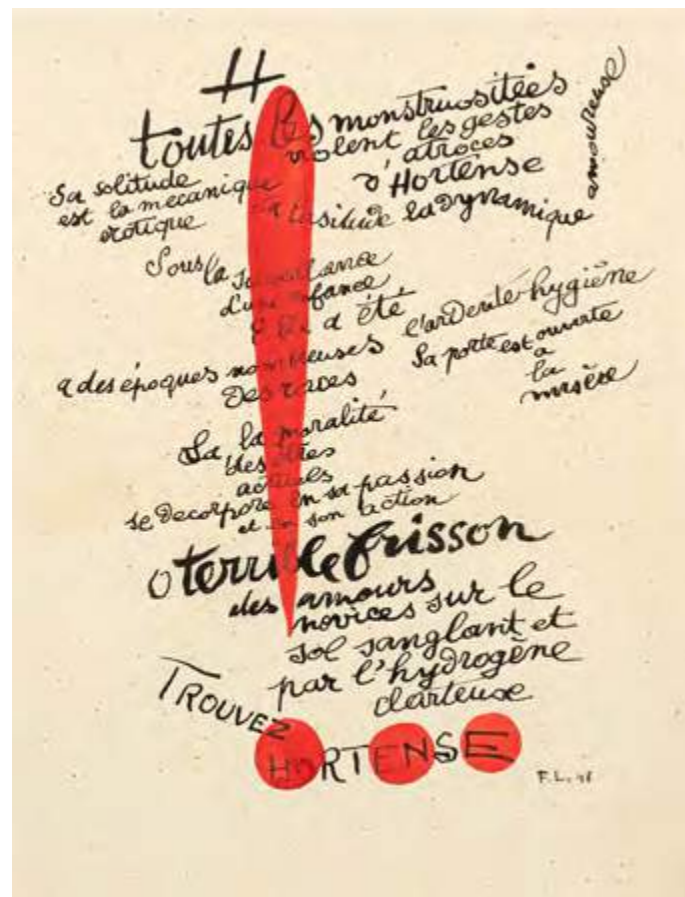 H
toutes les monstruositées
violent les gestes
atroces
d'Hortense
Sa solitude
est la mecanique
erotique
sa lasitude la dynamique
amoureuse
Sous la surveillance
d'une enfance
Elle a été
a des époques nombreuses
Des races
l'ardente hygiène
Sa porte est ouverte
a
la
misère
La la moralité
des êtres
actuels
se decorpore en sa passion
et en son action
o terrible frisson
des amours
novices sur le
sol sanglant et
par l'hydrogène
clarteuse
TROUVEZ
HORTENSE
F.L.